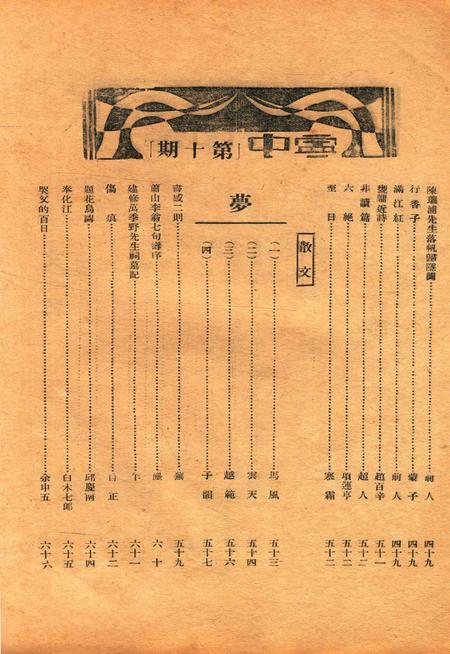 雪中「第十期」
陳瑞浦先生落帆歸隱圖……前人 四十九
行香子……蒙子 四十九
滿江紅……前人 四十九
甕牖近詩……趙百辛 五十一
非讀篇……超人 五十二
六絕……項蓮亭 五十二
至日……寒霜 五十二
散文
夢
(一)……馬風 五十三
(二)……雲天 五十四
(三)……越範 五十六
(四)……子韻 五十七
書感二則……五十九
蕭山李翁七旬壽序……六十
建修萬季野先生祠墓記……六十一
傷痕……白正 六十二
題花鳥圖……邱慶爾 六十四
奉化江……白木七郎 六十五
哭父的百日……余申五 六十六